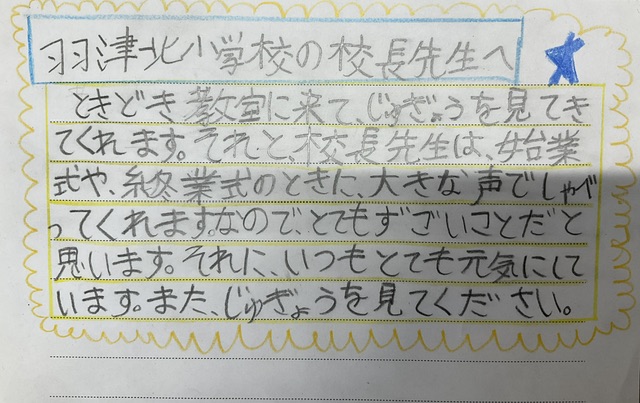 羽津北小学校の校長先生へ
ときどき教室に来て、じゅぎょうを見てき
てくれます。それと、校長先生は、始業
式や、終業式のときに、大きな声でしゃべ
ってくれます。なので、とてもずごいことだと
思います。それに、いつもとても元気にして
います。また、じゅぎょうを見てください。